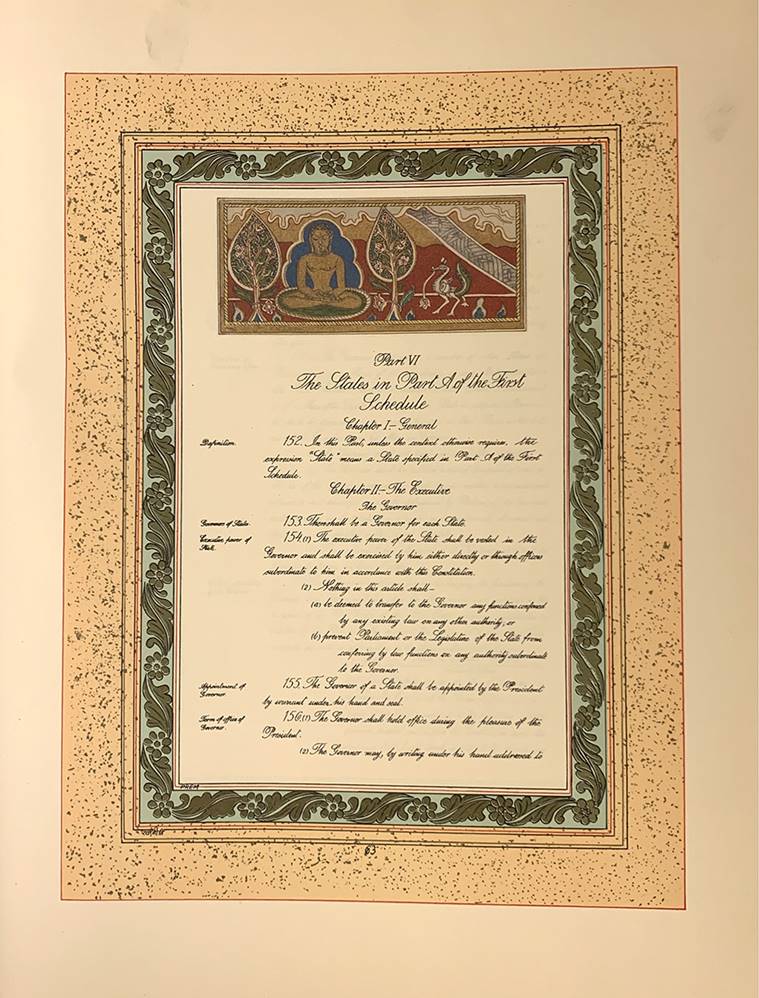 Part VI
The States in Part A of the First
Schedule
Chapter I— General
Definition. 152. In this Part, unless the context otherwise requires, the
expression "State" means a State specified in Part A of the First
Schedule.
Chapter II— The Executive
The Governor
Governors of States. 153. There shall be a Governor for each State.
Executive power of 154. (1) The executive power of the State shall be vested in the
State. Governor and shall be exercised by him either directly or through officers
subordinate to him in accordance with this Constitution.
(2) Nothing in this article shall—
(a) be deemed to transfer to the Governor any functions conferred
by any existing law on any other authority; or
(b) prevent Parliament or the Legislature of the State from
conferring by law functions on any authority subordinate
to the Governor.
Appointment of 155. The Governor of a State shall be appointed by the President
Governor. by warrant under his hand and seal.
Term of office of 156. (1) The Governor shall hold office during the pleasure of the
Governor. President.
(2) The Governor may, by writing under his hand addressed to
PREM
63